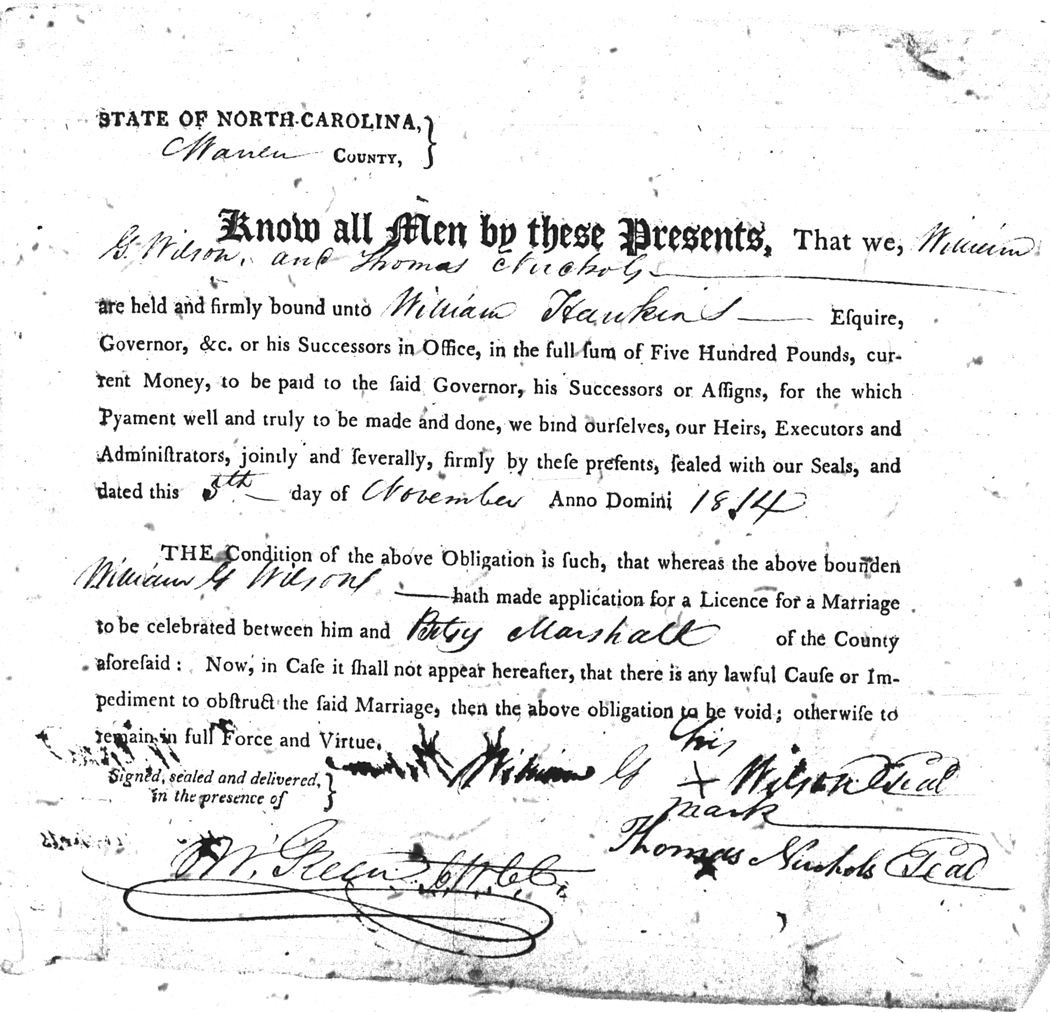 STATE OF NORTH-CAROLINA,
Warren COUNTY,
Know all Men by these Presents, That we, William
G. Wilson, and Thomas Nuchols
are held and firmly bound unto William Hawkins Eſquire,
Governor, &c. or his Successors in Office, in the full ſum of Five Hundred Pounds, cur-
rent Money, to be paid to the ſaid Governor, his Successors or Aſſigns, for the which
Pyament well and truly to be made and done, we bind ourſelves, our Heirs, Executors and
Adminiſtrators, jointly and ſeverally, firmly by theſe preſents, ſealed with our Seals, and
dated this 5th day of November Anno Domini 1814
THE Condition of the above Obligation is ſuch, that whereas the above bounden
William G Wilson hath made application for a Licence for a Marriage
to be celebrated between him and Betsy Marshall of the County
aforeſaid: Now, in Caſe it ſhall not appear hereafter, that there is any lawful Cauſe or Im-
pediment to obſtruct the ſaid Marriage, then the above obligation to be void; otherwiſe to
remain in full Force and Virtue.
Signed, sealed and delivered,
in the presence of
William G his X mark Wilson Seal
Thomas Nuchols Seal
W. Green C.W.C.C.